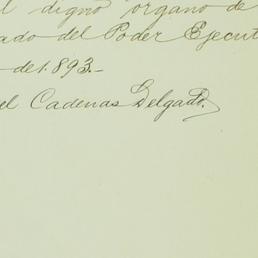 l digno órgano de
ado del Poder Ejecut
de 1.893.-
el Cadenas Delgado.